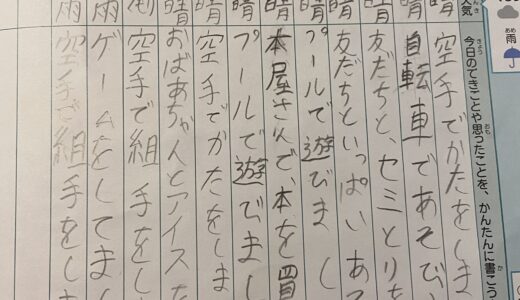 雨
今日のできごとや思ったことを、かんたんに書こう
天気
晴 空手でかたをしま
晴 自転車であそび
晴 友だちと、セミとりを
晴 友だちといっぱいあ
晴 プールで遊びまし
晴 本屋さんで、本を買
晴 プールで遊びまし
晴 空手でかたをしま
晴 おばあちゃんとアイスを
空手で組手をし
雨 ゲームをしてまし
雨 空手で組手をしま